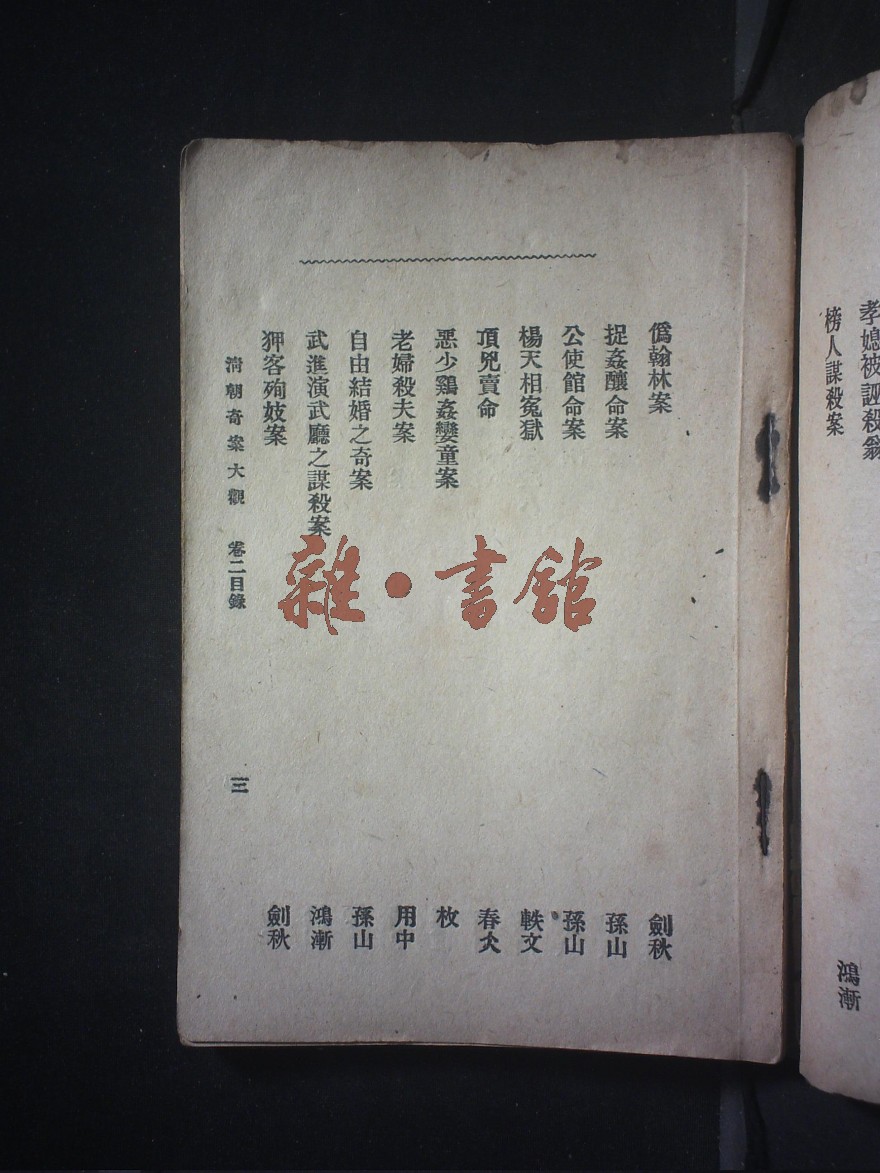 孝媳被誣殺翁
榜人謀殺案
鴻漸
僞翰林案 劍秋
捉姦釀命案 孫山
公使館命案 孫山
楊天相冤獄 軼文
頂兇賣命 春炏
惡少鷄姦孌童案 枚
老婦殺夫案 用中
自由結婚之奇案 孫山
武進演武廳之謀殺案 鴻漸
狎客殉妓案 劍秋
清朝奇案大觀 卷二目錄 三
雜·書舘